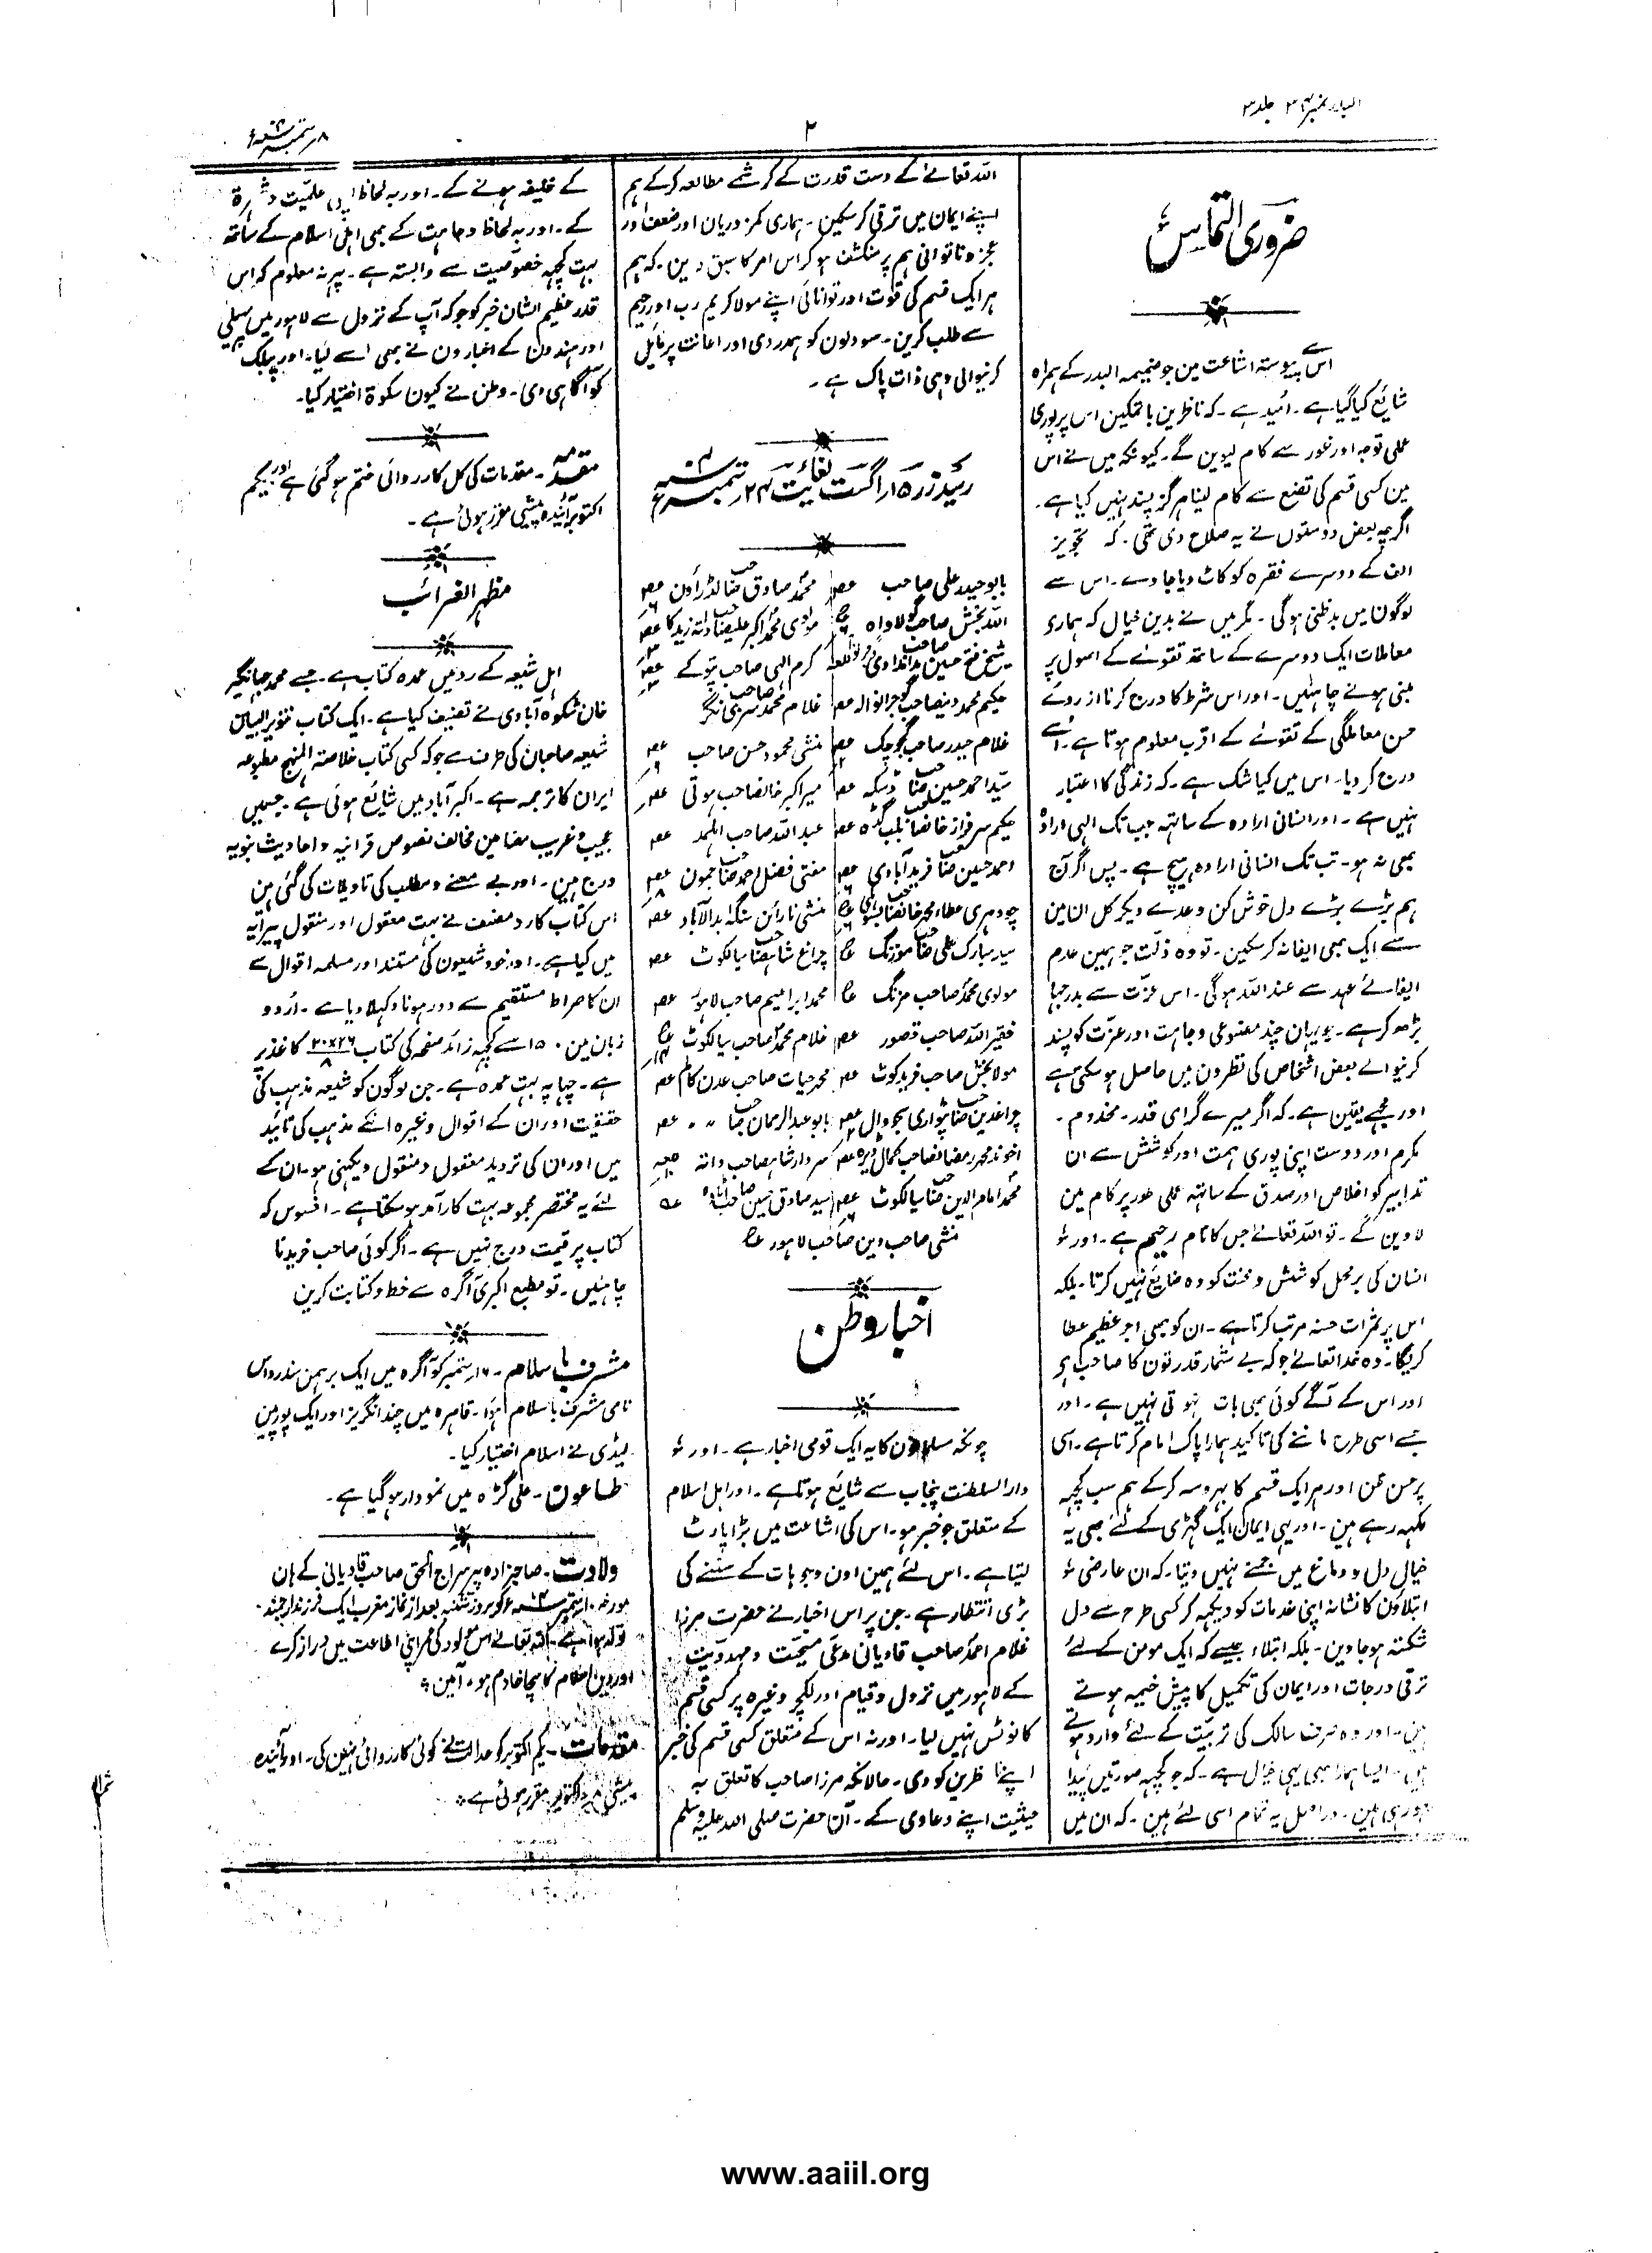 البدر نمبر ۳۴ جلد ۳
۲
۸ ستمبر
ضروری التماس
اس پیوستہ اشاعت مین جو ضمیمہ البدر کے ہمراہ
شائع کیا گیا ہے ۔ اُمید ہے ۔ کہ ناظرین با تمکین اس پر پوری
عملی توجہ اور غور سے کام لیوین گے ۔ کیونکہ میں نے اس
مین کسی قسم کی تصنع سے کام لینا ہرگز پسند نہیں کیا ہے ۔
اگرچہ بعض دوستوں نے یہ صلاح دی تھی ۔ کہ تجویز
الف کے دوسرے فقرہ کو کاٹ دیا جاوے ۔ اس سے
لوگوں میں بدظنی ہوگی ۔ مگر میں نے بدین خیال کہ ہماری
معاملات ایک دوسرے کے ساتھ تقوےٰ کے اصول پر
مبنی ہونے چاہئیں ۔ اور اس شرط کا درج کرنا از روئے
حسن معاملگی کے تقوےٰ کے اقرب معلوم ہوتا ہے ۔ اُسے
درج کر دیا ۔ اس میں کیا شک ہے ۔ کہ زندگی کا اعتبار
نہیں ہے ۔ اور انسانی ارادہ کے ساتھ جب تک الٰہی ارادہ
بھی نہ ہو ۔ تب تک انسانی ارادہ ہیچ ہے ۔ پس اگر آج
ہم بڑے بڑے دل خوش کن وعدے دیکر کل ان مین
سے ایک بھی ایفا نہ کر سکین ۔ تو وہ ذلّت جو ہمین عدم
ایفائے عہد سے عند اللہ ہوگی ۔ اس عزّت سے بدرجہا
بڑھ کر ہے ۔ جو یہاں چند مصنوعی وجاہت اور عزّت کو پسند
کرنیوالے بعض اشخاص کی نظروں میں حاصل ہو سکتی ہے
اور مجھے یقین ہے ۔ کہ اگر میرے گرامی قدر ۔ مخدوم ۔
مکرم اور دوست اپنی پوری ہمت اور کوشش سے ان
تدابیر کو اخلاص اور صدق کے ساتھ عملی طور پر کام مین
لاوین گے ۔ تو اللہ تعالےٰ جس کا نام رحیم ہے ۔ اور
انسان کی برمحل کوشش و محنت کو وہ ضایع نہیں کرتا ۔ بلکہ
اس پر ثمرات حسنہ مرتب کرتا ہے ۔ ان کو بھی اجر عظیم عطا
کریگا ۔ وہ خدا تعالےٰ جو کہ بے شمار قدرتوں کا صاحب ہے
اور اس کے آگے کوئی بھی بات نہیں ہے ۔ اور
جسے اسی طرح ماننے کی تاکید ہمارا پاک امام کرتا ہے ۔ اسی
پر حسن ظن اور ہر ایک قسم کا بہروسہ کر کے ہم سب کچھ
لکھہ رہے ہین ۔ اور یہی ایمان ایک گہڑی کے لئے بھی یہ
خیال دل و دماغ میں جمنے نہیں دیتا ۔ کہ ان عارضی
ابتلاؤں کا نشانہ اپنی خدمات کو دیکہہ کر کسی طرح سے دل
شکستہ ہو جاوین ۔ بلکہ ابتلاء جیسے کہ ایک مومن کے لئے
ترقی درجات اور ایمان کی تکمیل کا پیش خیمہ ہوتے
ہین ۔ اور وہ صرف سالک کی تربیت کے لئے وارد ہوتے
ہیں ۔ ایسا ہمارا بھی یہی خیال ہے ۔ کہ جو کچھہ صورتیں پیدا
ہو رہی ہین ۔ دراصل یہ تمام اسی لئے ہین ۔ کہ ان میں
اللہ تعالےٰ کے دست قدرت کے کرشمے مطالعہ کر کے ہم
اپنے ایمان میں ترقی کر سکین ۔ ہماری کمزوریان اور ضعف اور
عجز و ناتوانی ہم پر منکشف ہو کر اس امر کا سبق دین ۔ کہ ہم
ہر ایک قسم کی قوت اور توانائی اپنے مولا کریم رب اور رحیم
سے طلب کرین ۔ سو دلوں کو ہمدردی اور اعانت پر مائل
کرنیوالی وہی ذات پاک ہے ۔
رسید زر ۱۵ اگست لغایت ۲۴ ستمبر
بابو حیدر علی صاحب محمد صادق صاحب
اللہ بخش صاحب
شیخ فتح حسین کرم الٰہی صاحب
حکیم محمد دین صاحب گوجرانوالہ غلام محمد صاحب سری نگر
غلام حیدر صاحب منشی محمود حسن صاحب
سید احمد حسین صاحب ڈسکہ میر اکبر خانصاحب ہوتی
حکیم سرفراز خانصاحب بلب گڈہ عبد اللہ صاحب
احمد حسین صاحب فریدآبادی مفتی فضل احمد صاحب جموں
چودہری عطاء محمد خانصاحب منشی نارائن سنگہ
سید مبارک علی صاحب موزنگ چراغ شاہ صاحب سیالکوٹ
مولوی محمد صاحب مزنگ محمد ابراہیم صاحب لاہور
فقیر اللہ صاحب قصور غلام محمد صاحب سیالکوٹ
مولا بخش صاحب فریدکوٹ محمد حیات صاحب عدن کالم
چراغدین صاحب پٹواری بابو عبد الرحمان صاحب
اخوند محمد رمضان صاحب سردار شاہ صاحب داتہ
محمد امام الدین صاحب سیالکوٹ سید صادق حسین صاحب اٹاوہ
منشی صاحب دین صاحب لاہور
اخبار وطن
چونکہ مسلمانوں کا یہ ایک قومی اخبار ہے ۔ اور
دار السلطنت پنجاب سے شائع ہوتا ہے ۔ اور اہل اسلام
کے متعلق جو خبر ہو ۔ اس کی اشاعت میں بڑا پارٹ
لیتا ہے ۔ اس لئے ہمین اون وجوہات کے سننے کی
بڑی انتظار ہے ۔ جن پر اس اخبار نے حضرت مرزا
غلام احمد صاحب قادیانی مدعی مسیحیت و مہدویت
کے لاہور میں نزول و قیام اور لکچر وغیرہ پر کسی قسم
کا نوٹس نہیں لیا ۔ اور نہ اس کے متعلق کسی قسم کی خبر
اپنے ناظرین کو دی ۔ حالانکہ مرزا صاحب کا تعلق بہ
حیثیت اپنے دعاوی کے ۔ آن حضرت صلی اللہ علیہ وسلم
کے خلیفہ ہونے کے ۔ اور بہ لحاظ اپنی علمیت و شہرۃ
کے ۔ اور بہ لحاظ وجاہت کے بھی اہل اسلام کے ساتھ
بہت کچھہ خصوصیت سے وابستہ ہے ۔ پہر نہ معلوم کہ اس
قدر عظیم الشان خبر کو جو کہ آپ کے نزول سے لاہور میں پہیلی
اور ہندوں کے اخبارون نے بھی اسے لیا ۔ اور پبلک
کو آگاہی دی ۔ وطن نے کیون سکوۃ اختیار کیا ۔
مقدمہ ۔ مقدمات کی کل کارروائی ختم ہو گئی ہے اور یکم
اکتوبر آئندہ پیشی مقرر ہوئی ہے ۔
مظہر الغرائب
اہل شیعہ کے رد میں عمدہ کتاب ہے ۔ جسے محمد جہانگیر
خان شکوہ آبادی نے تصنیف کیا ہے ۔ ایک کتاب تنویر البیان
شیعہ صاحبان کی طرف سے جو کہ کسی کتاب خلاصۃ المنہج مطبوعہ
ایران کا ترجمہ ہے ۔ اکبرآباد میں شایع ہوئی ہے ۔ جسمیں
عجیب و غریب مضامین مخالف نصوص قرآنیہ و احادیث نبویہ
درج ہین ۔ اور بے معنے و مطلب کی تاویلات کی گئی ہین
اس کتاب کا رد مصنف نے بہت معقول اور منقول پیرایہ
میں کیا ہے ۔ اور خود شیعوں کی مستند اور مسلمہ اقوال سے
ان کا صراط مستقیم سے دور ہونا دکہلا دیا ہے ۔ اُردو
زبان مین ۱۵۰ سے کچھہ زائد صفحہ کی کتاب ۲۰×۲۶/۸ کاغذ پر
ہے ۔ چہاپہ بہت عمدہ ہے ۔ جن لوگوں کو شیعہ مذہب کی
حقیقت اور ان کے اقوال وغیرہ اپنے مذہب کی تائید
میں اور ان کی تردید معقول و منقول دیکہنی ہو ۔ ان کے
لئے یہ مختصر مجموعہ بہت کارآمد ہو سکتا ہے ۔ افسوس کہ
کتاب پر قیمت درج نہیں ہے ۔ اگر کوئی صاحب خریدنا
چاہئیں ۔ تو مطبع اکبری آگرہ سے خط و کتابت کرین
مشرف با سلام ۔ ۱۶ ستمبر کو آگرہ میں ایک برہمن سندر داس
نامی مشرف با سلام ہوا ۔ قاہرہ میں چند انگریز اور ایک یورپین
لیڈی نے اسلام اختیار کیا ۔
طاعون ۔ علی گڑہ میں نمودار ہو گیا ہے ۔
ولادت ۔ صاحبزادہ پیر سراج الحق صاحب قادیانی کے ہاں
مورخہ ستمبر کو بروز شنبہ بعد از نماز مغرب ایک فرزند ارجمند
تولد ہوا ہے ۔ اللہ تعالےٰ اس مولود کی عمر اپنی اطاعت میں دراز کرے
اور دین اسلام کا سچا خادم ہو ۔ آمین
مقدمات ۔ یکم اکتوبر کو عدالت نے کوئی کارروائی نہیں کی ۔ اور آئندہ
پیشی اکتوبر مقرر ہوئی ہے
www.aaiil.org